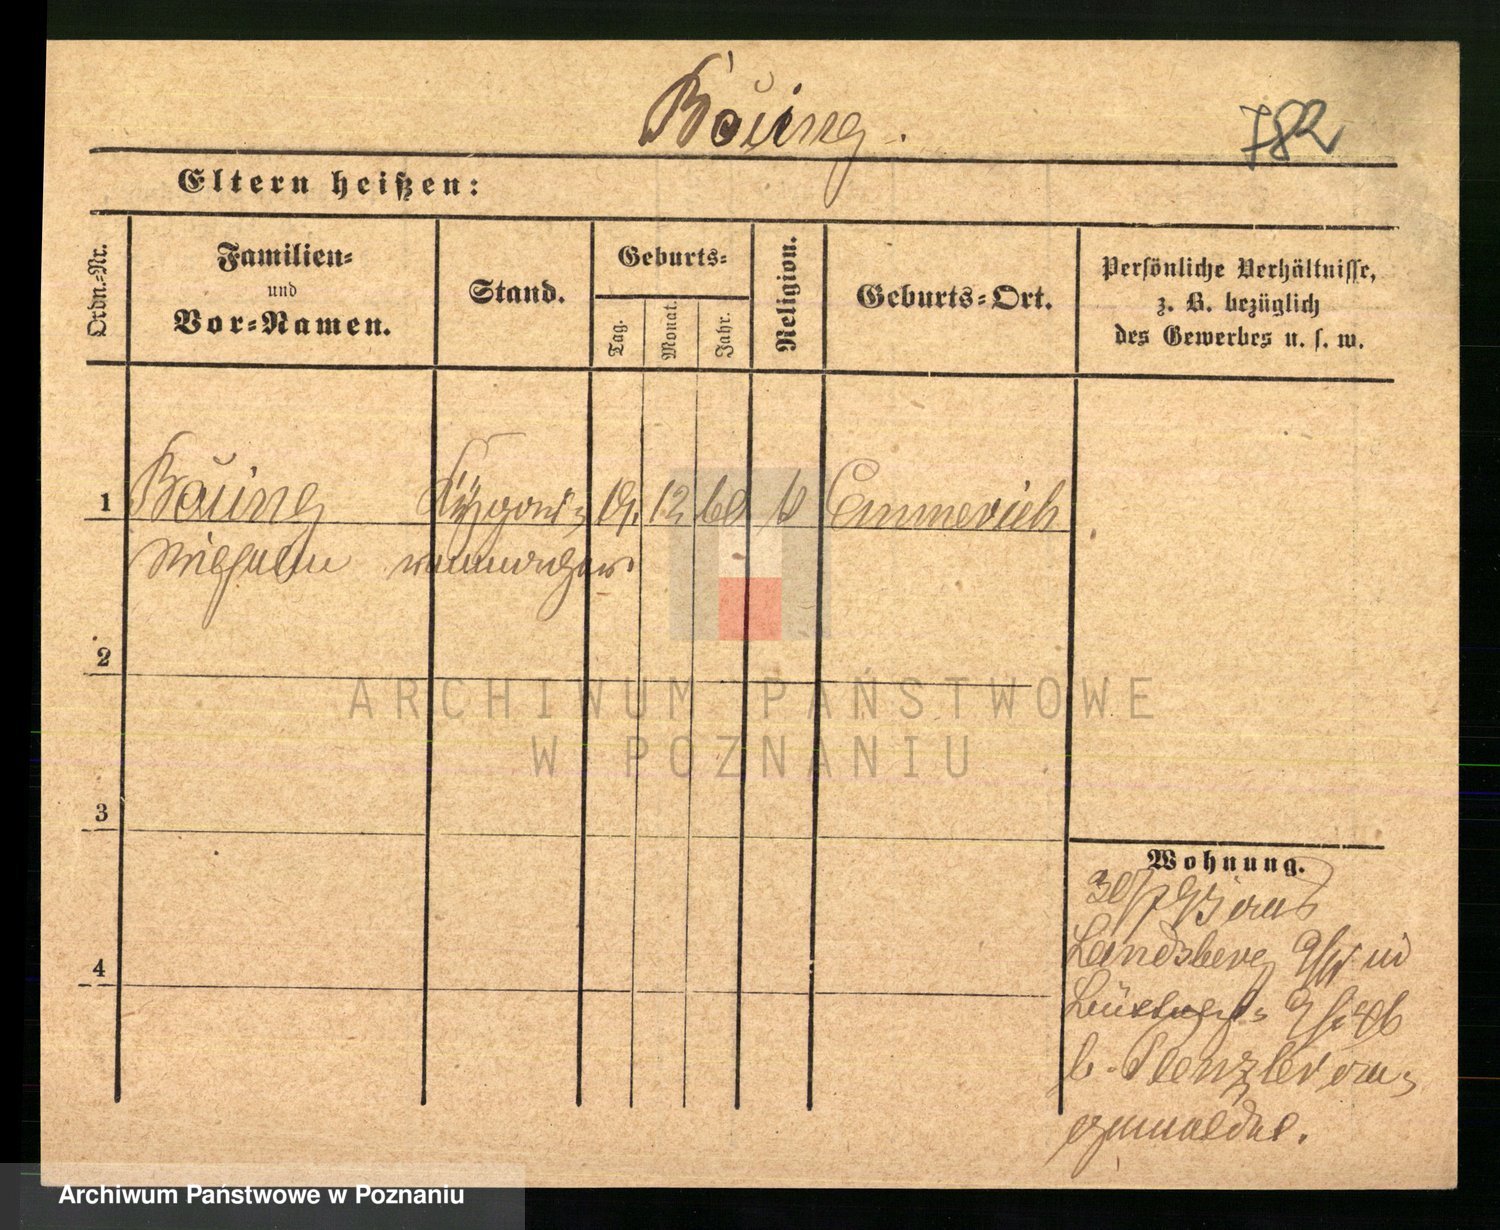 Bouing.
782
Eltern heißen:
Ordn.=Nr.
Familien=
und
Vor=Namen.
Stand.
Geburts=
Tag.
Monat.
Jahr.
Religion.
Geburts=Ort.
Persönliche Verhältnisse,
z. B. bezüglich
des Gewerbes u. s. w.
1 Bouing 19. 12 60 Emmerich
Wilhelm
2
3
4
Wohnung.
30/7 93 aus
Landsberg in
b. Stenzler an=
gemeldet.
ARCHIWUM PAŃSTWOWE
W POZNANIU
Archiwum Państwowe w Poznaniu